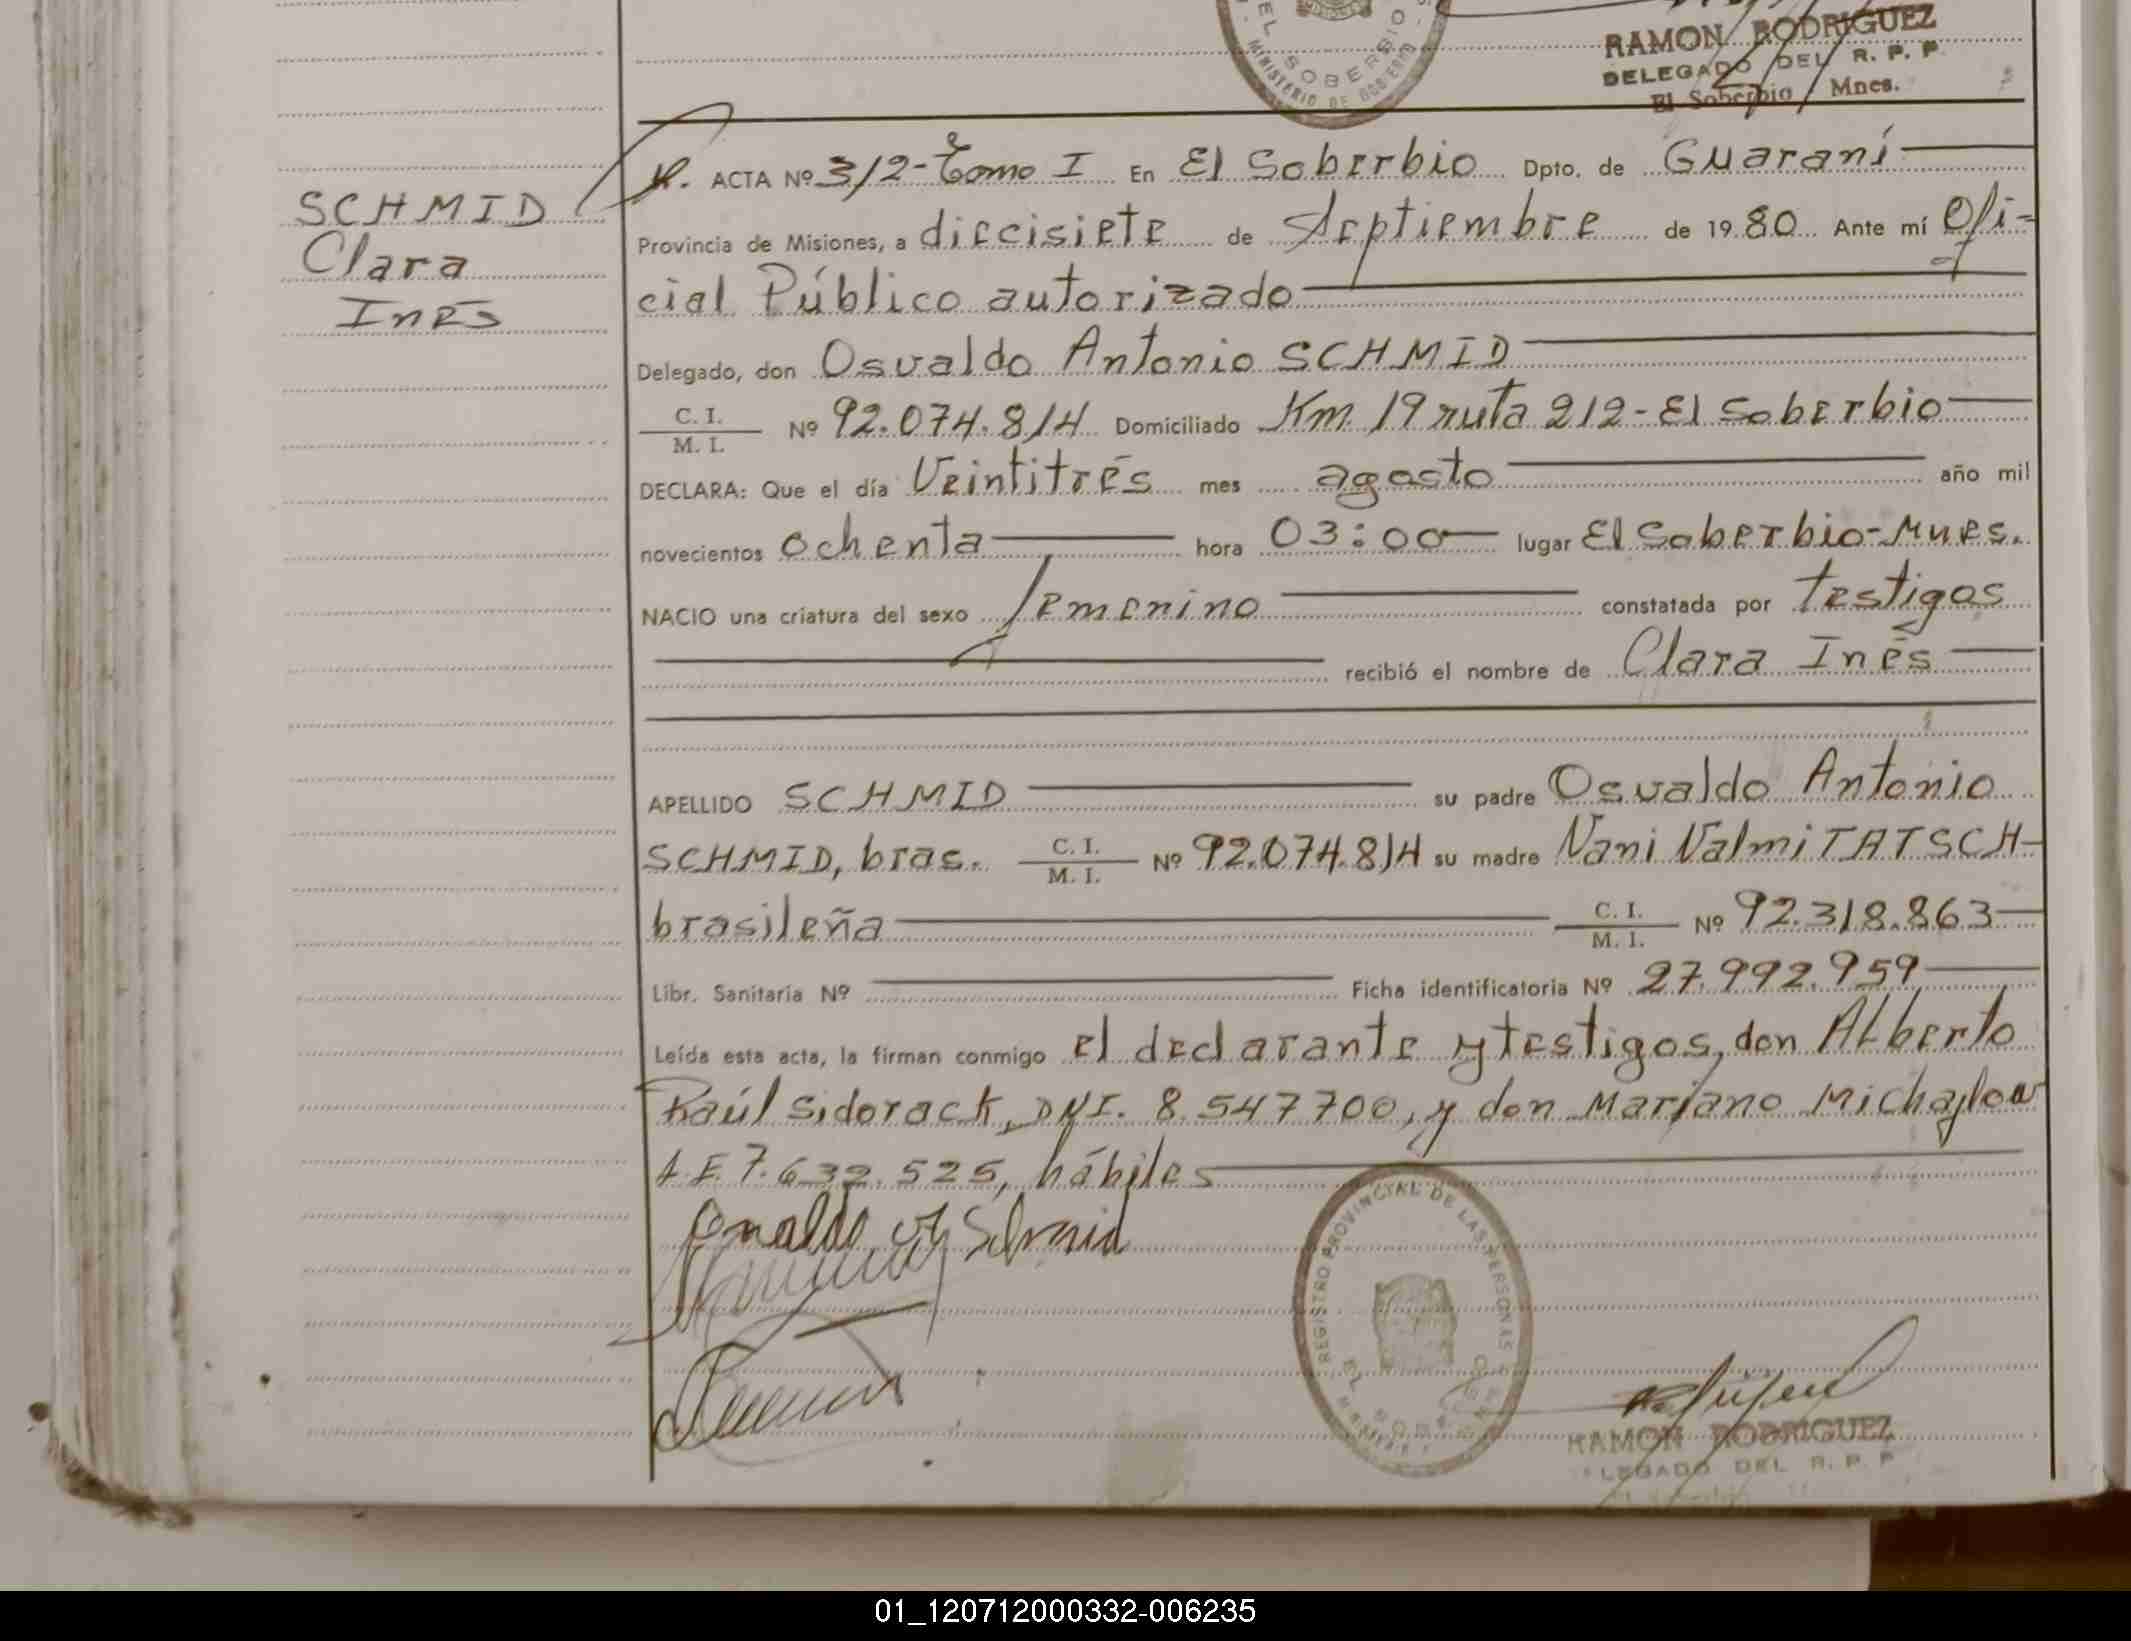 EL SOBERBIO
MINISTERIO DE GOBIERNO
RAMON RODRIGUEZ
DELEGADO DEL R. P. P.
El Soberbio Mnes.
SCHMID
Clara
Inés
ACTA Nº 312-Tomo I En El Soberbio Dpto. de Guaraní
Provincia de Misiones, a diecisiete de Septiembre de 1980 Ante mí Ofi-
cial Público autorizado
Delegado, don Osvaldo Antonio SCHMID
C. I.
M. I. Nº 92.074.814 Domiciliado Km. 19 ruta 212-El Soberbio
DECLARA: Que el día Veintitrés mes agosto año mil
novecientos ochenta hora 03:00 lugar El Soberbio-Mnes.
NACIO una criatura del sexo femenino constatada por testigos
recibió el nombre de Clara Inés
APELLIDO SCHMID su padre Osvaldo Antonio
SCHMID, bras. C. I. M. I. Nº 92.074.814 su madre Nani Valmi TATSCH-
brasileña C. I. M. I. Nº 92.318.863
Libr. Sanitaria Nº Ficha identificatoria Nº 27.992.959
Leída esta acta, la firman conmigo el declarante y testigos, don Alberto
Raúl Sidorack, DNI. 8.547700, y don Mariano Michajlow
L.E. 7.632.525, hábiles
Osvaldo A Schmid
REGISTRO PROVINCIAL DE LAS PERSONAS
EL SOBERBIO
RAMON RODRIGUEZ
LEGADO DEL R. P. P
01_120712000332-006235